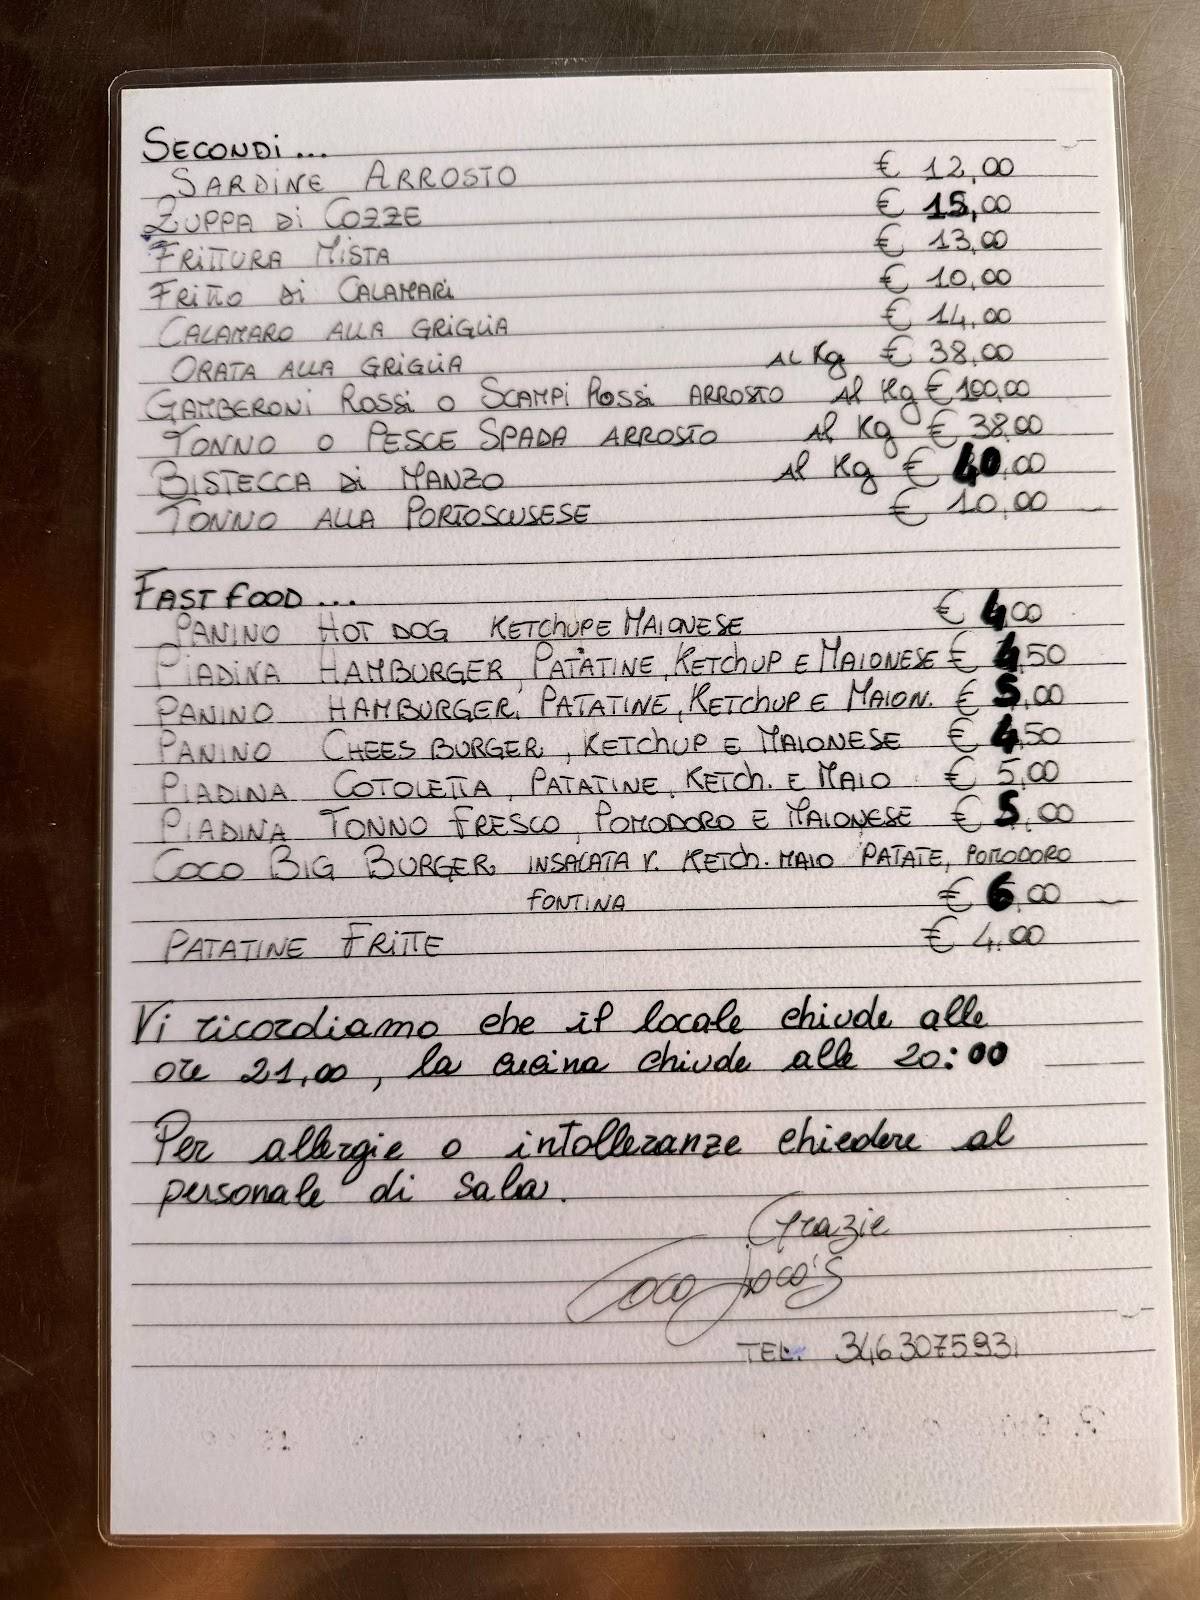 SECONDI...
SARDINE ARROSTO € 12,00
ZUPPA DI COZZE € 15,00
FRITTURA MISTA € 13,00
FRITTO DI CALAMARI € 10,00
CALAMARO ALLA GRIGLIA € 14,00
ORATA ALLA GRIGLIA AL Kg € 38,00
GAMBERONI ROSSI O SCAMPI ROSSI ARROSTO Al Kg € 100,00
TONNO O PESCE SPADA ARROSTO Al Kg € 38,00
BISTECCA DI MANZO Al Kg € 40,00
TONNO ALLA PORTOSCUSESE € 10,00
FAST FOOD...
PANINO HOT DOG KETCHUP E MAIONESE € 4,00
PIADINA HAMBURGER, PATATINE, KETCHUP E MAIONESE € 4,50
PANINO HAMBURGER, PATATINE, KETCHUP E MAION. € 5,00
PANINO CHEES BURGER, KETCHUP E MAIONESE € 4,50
PIADINA COTOLETTA, PATATINE, KETCH. E MAIO € 5,00
PIADINA TONNO FRESCO, POMODORO E MAIONESE € 5,00
COCO BIG BURGER INSALATA V. KETCH. MAIO PATATE, POMODORO
FONTINA € 6,00
PATATINE FRITTE € 4,00
Vi ricordiamo che il locale chiude alle
ore 21,00, la cucina chiude alle 20:00
Per allergie o intolleranze chiedere al
personale di sala.
Grazie
Coco Joco's
TEL. 3463075931